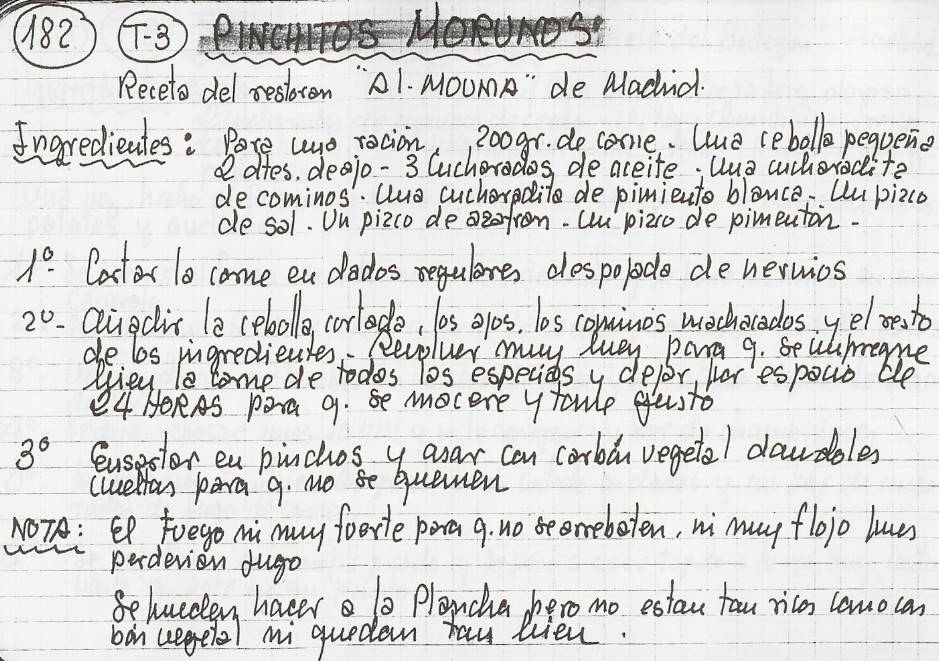 182 T-3 PINCHITOS MORUNOS
Receta del restoran "Al-MOUNIA" de Madrid.
Ingredientes: Para una ración, 200gr. de carne. Una cebolla pequeña
2 dtes. de ajo - 3 Cucharadas de aceite. Una cucharadita
de cominos. Una cucharadita de pimienta blanca. Un pizco
de sal. Un pizco de azafran. Un pizco de pimentón.-
1º- Cortar la carne en dados regulares despojada de nervios
2º- Añadir la cebolla cortada, los ajos, los cominos machacados y el resto
de los ingredientes. Revolver muy bien para q. se impregne
bien la carne de todas las especias y dejar, por espacio de
24 HORAS para q. se macere y tome gusto
3º Ensartar en pinchos y asar con carbón vegetal dandoles
vueltas para q. no se quemen
NOTA: El Fuego ni muy fuerte para q. no se arrebaten, ni muy flojo pues
perderian jugo
Se pueden hacer a la Plancha pero no estan tan ricos como car
bón vegetal ni quedan tan bien.